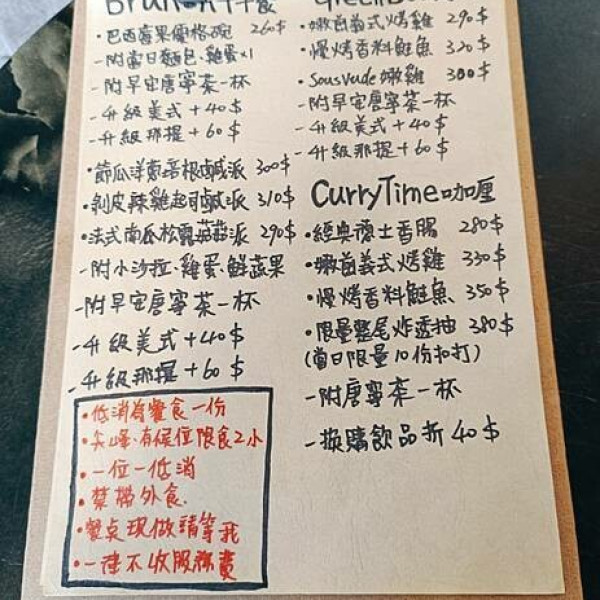 Brunch 早午餐
・巴西莓果優格碗 260$
-附當日麵包、雞蛋x1
-附早安唐寧茶一杯
-升級美式+40$
-升級那提+60$
・節瓜洋蔥培根鹹派 300$
・剝皮辣雞起司鹹派 310$
・法式南瓜松露菇菇派 290$
-附小沙拉、雞蛋、鮮蔬果
-附早安唐寧茶一杯
-升級美式+40$
-升級那提+60$
・低消為餐食一份
・尖峰、有候位限食2小
・一位一低消
・禁攜外食.
・餐點現做請等我
・一律不收服務費
・嫩菌義式烤雞 290$
・慢烤香料鮭魚 320$
・Sousvude 嫩雞 300$
-附早安唐寧茶一杯
-升級美式+40$
-升級那提+60$
CurryTime咖喱
・經典德士香腸 280$
・嫩菌義式烤雞 330$
・慢烤香料鮭魚 350$
・限量整尾炸透抽 380$
(當日限量10份扣打)
-附唐寧茶一杯
-換購飲品折40$